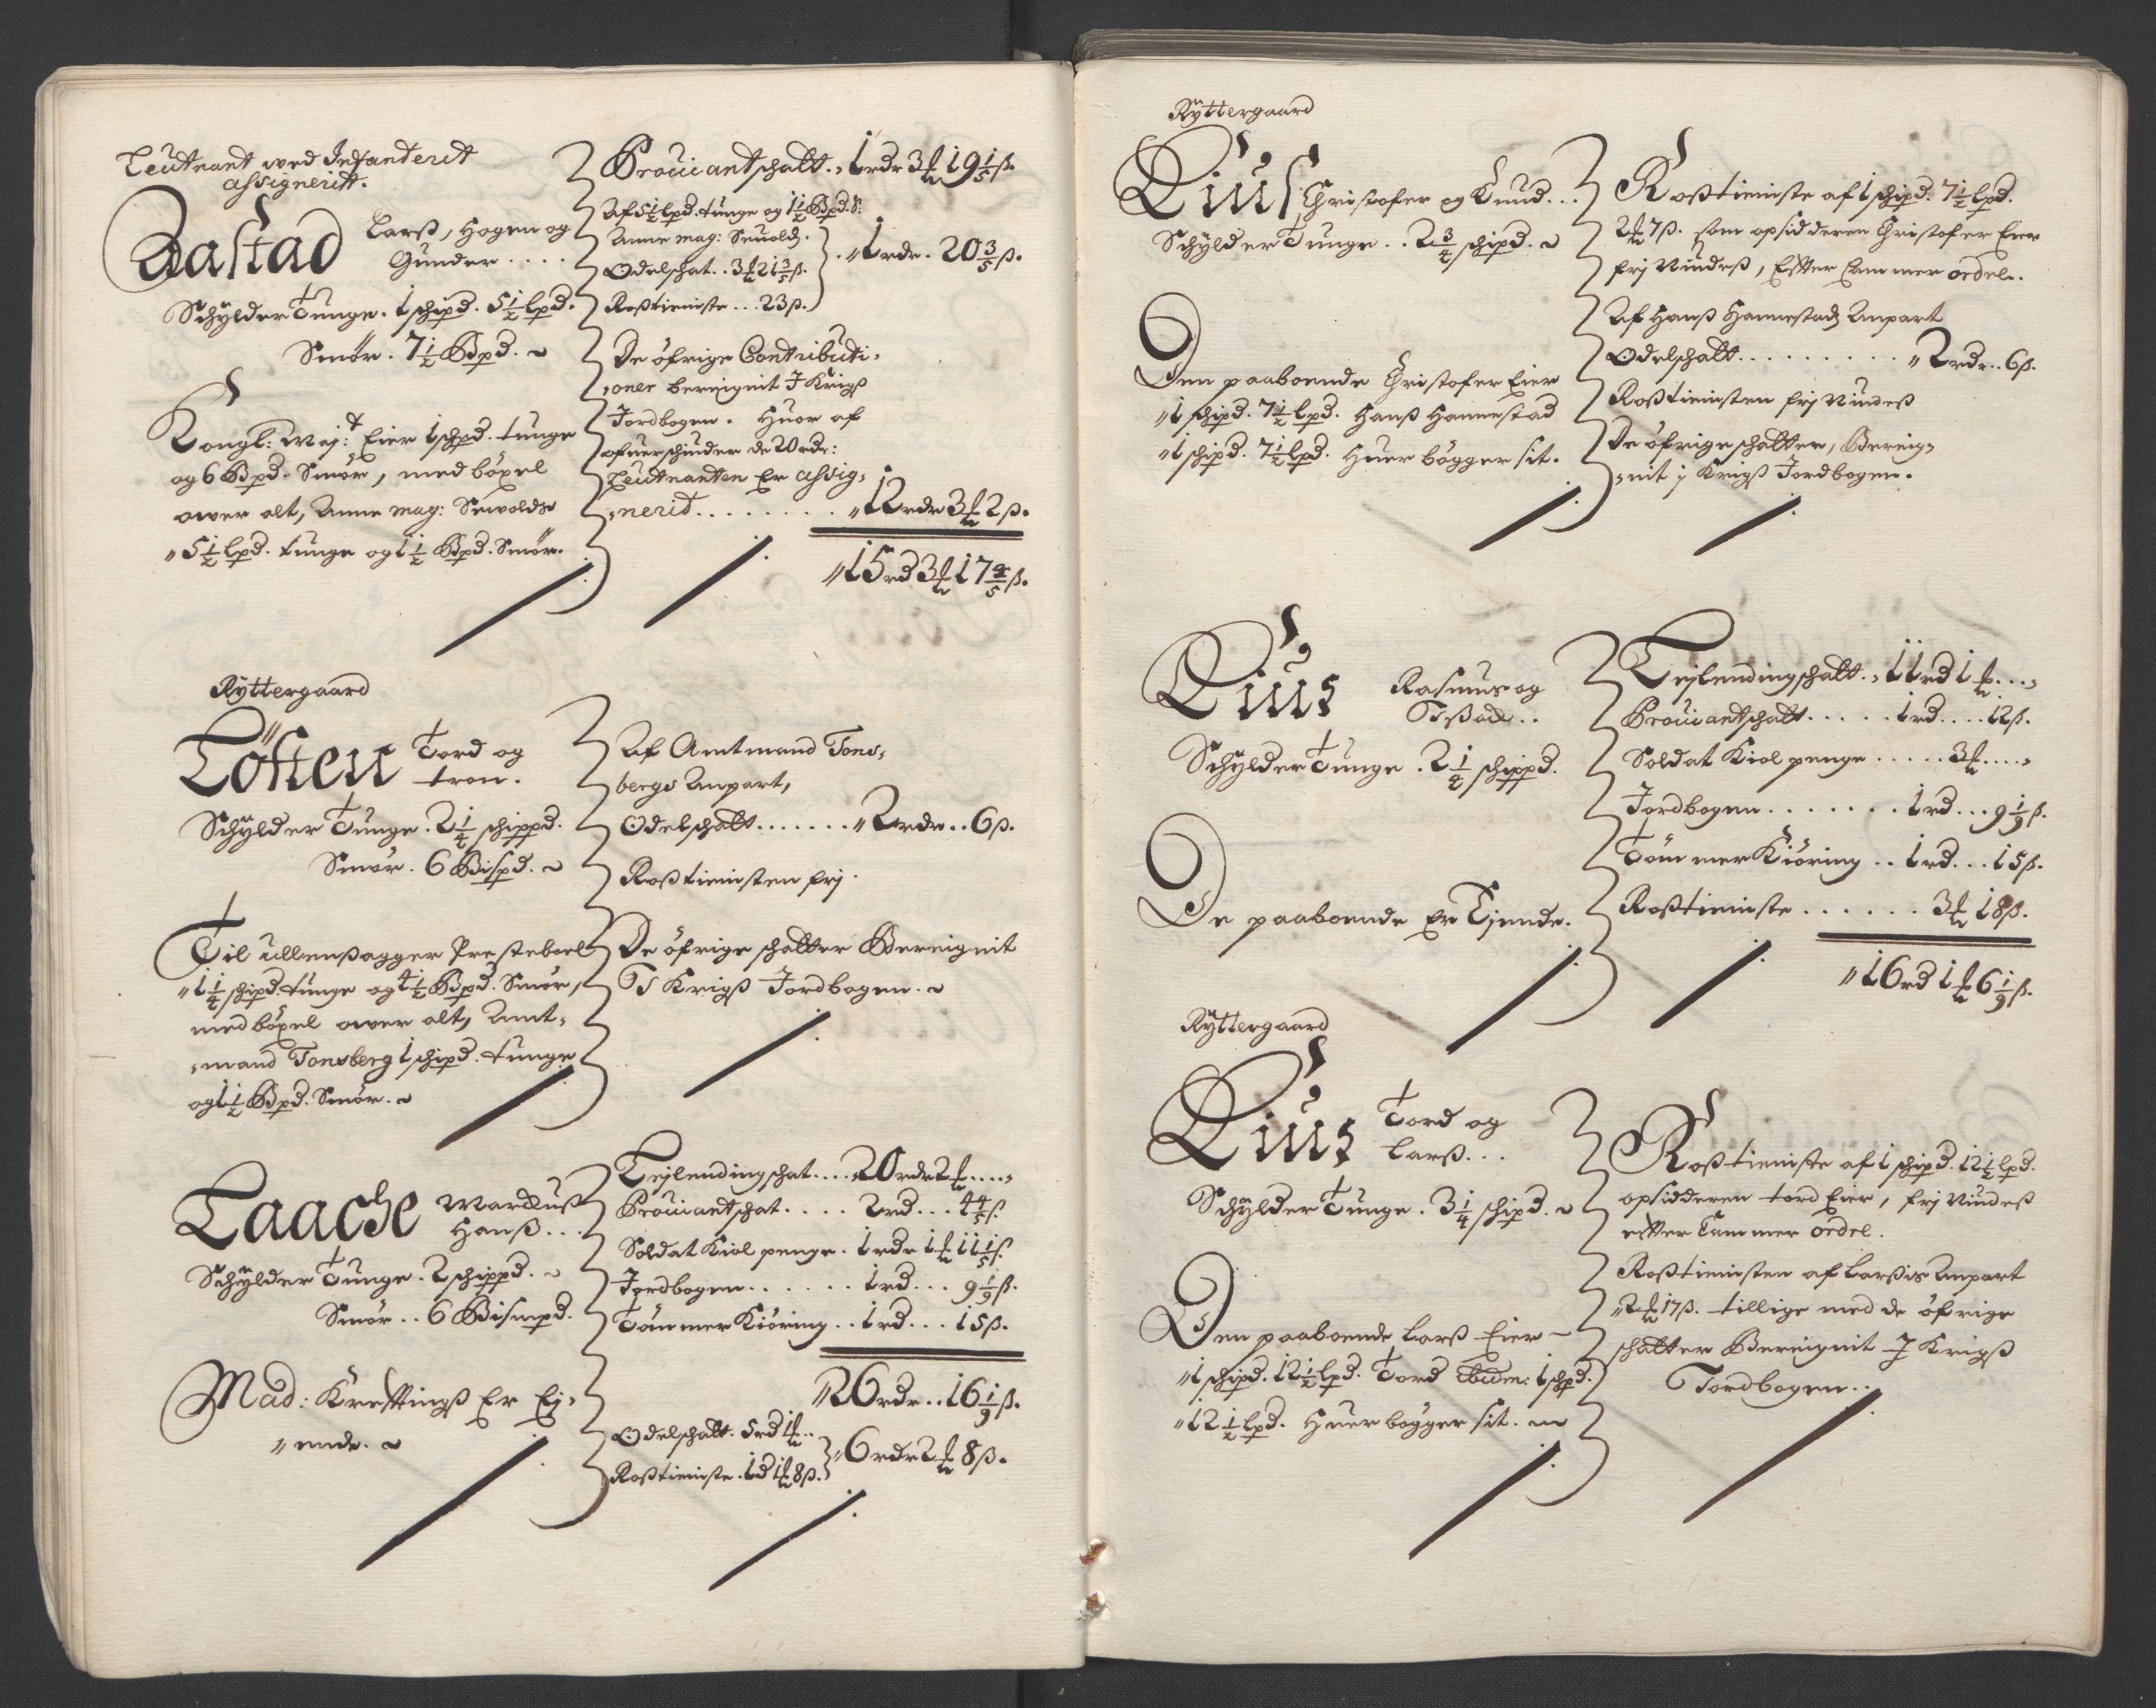 Leutnant wed Infanterit
assignerit.
Aastad Larß, Hogen og
Gunder . . . .
Schÿlder Tunge . 1 schipd. 5½ lpd.
Smör . 7½ Bpd.
Kongl: Maj:t Eier 1 schpd. tunge
og 6 Bpd. Smör, med böxel
ower alt, Anne mag: Sewolds
5½ lpd. tunge og 1½ Bpd. Smör.
Prouiantschatt . 1 rdr 3 ℔ 19⅕ ß.
Af 5½ lpd. tunge og 1½ Bpd. S:
Anne mag: Seuolds.
Odelschat . . 3 ℔ 21⅗ ß.
Roßtieniste . . . 23 ß. 1 rdr. 20⅗ ß.
De öfrige Contributi-
oner bereignit J Krigß
Jordbogen. Huor af
ofuerschuder de 20 rdr:
Leutnanten Er assig-
nerit . . . . . . . . 12 rdr 3 ℔ 2 ß.
15 rd 3 ℔ 17⅘ ß.
Rÿttergaard
Töften Tord og
tron.
Schÿlder Tunge . 2¼ schippd.
Smör . 6 Bispd.
Til ullenßagger Presteboel
1¼ schipd. tunge og 4½ Bpd. Smör,
med böxel ower alt, Amt-
mand Tonsberg 1 schipd. tunge
og 1½ Bpd. Smör.
Af Amtmand Tons-
bergs Anpart,
Odelschatt . . . . . . . 2 rdr . . 6 ß.
Roßtienisten frj.
De öfrige schatter Bereignit
J Krigß Jordbogen.
Taache Marckuß
Hanß . . .
Schÿlder Tunge . 2 schippd.
Smör . . 6 Bismpd.
Mad: Kreftingß Er Ej-
ende.
Lejlendingschat . . . . 20 rdr 2 ℔ . . . .
Prouiantschat . . . . . 2 rd . . . 4⅘ ß.
Soldat Kiol penge . 1 rdr 1 ℔ 11⅕ ß.
Jordbogen . . . . . . 1 rd . . . 9⅑ ß.
Tömmer Kiöring . . 1 rd . . . 15 ß.
26 rdr . . 16⅑ ß.
Odelschatt . 5 rd 1 ℔ . .
Roßtieniste . 1 d 1 ℔ 8 ß. 6 rdr 2 ℔ 8 ß.
Rÿttergaard
Riiis Christofer og Knud . . .
Schÿlder Tunge . . 2¾ schipd.
Den paaboende Christofer Eier
1 schipd. 7½ lpd. Hanß Hannestad
1 schipd. 7½ lpd. Huer bÿgger sit.
Roßtieniste af 1 schipd. 7½ lpd.
2 ℔ 7 ß. som opsidderen Christofer Eier
frj Nindeß, Efter Cammer ordre.
Af Hanß Hannestads Anpart
Odelschatt . . . . . . . . . . 2 rdr . . 6 ß.
Roßtienisten frj Nindeß
De öfrige schatter, Bereig-
nit j Krigß Jordbogen.
Riiis Rasmus og
Tßack . .
Schÿlder Tunge . 2¼ schippd.
De paaboende Er Ejende.
Lejlendingschatt . 11 rd 1 ℔ . . .
Prouiantschatt . . . . . 1 rd . . . . 12 ß.
Soldat Kiol penge . . . . . 3 ℔ . . . .
Jordbogen . . . . . . . 1 rd . . . 9⅑ ß.
Tömmer Kiöring . . 1 rd . . . 15 ß.
Roßtieniste . . . . . . . 3 ℔ 18 ß.
16 rd 1 ℔ 6⅑ ß.
Rÿttergaard
Riiis Tord og
Larß . . .
Schÿlder Tunge . 3¼ schipd.
Den paaboende Larß Eier
1 schipd. 12½ lpd. Tord Ibidem: 1 schpd.
12½ lpd. Huer bÿgger sit.
Roßtieniste af 1 schipd. 12½ lpd.
opsidderen tord Eier, frj Nindeß
efter Cammer ordre.
Roßtienisten af Larßis Anpart
2 ℔ 17 ß. tillige med de öfrige
schatter Bereignit J Krigß
Jordbogen . .